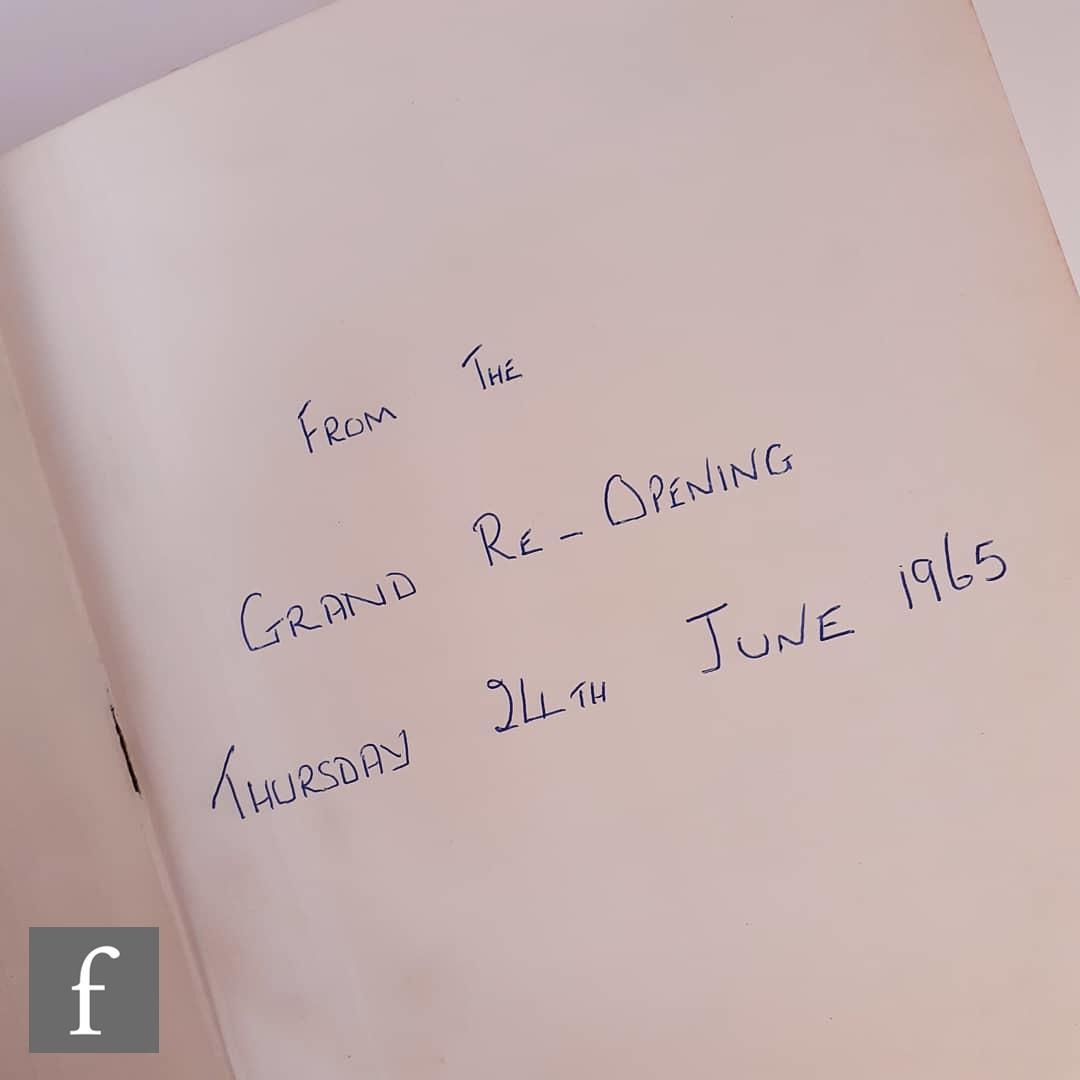 From The
Grand Re-Opening
Thursday 24th June 1965
f